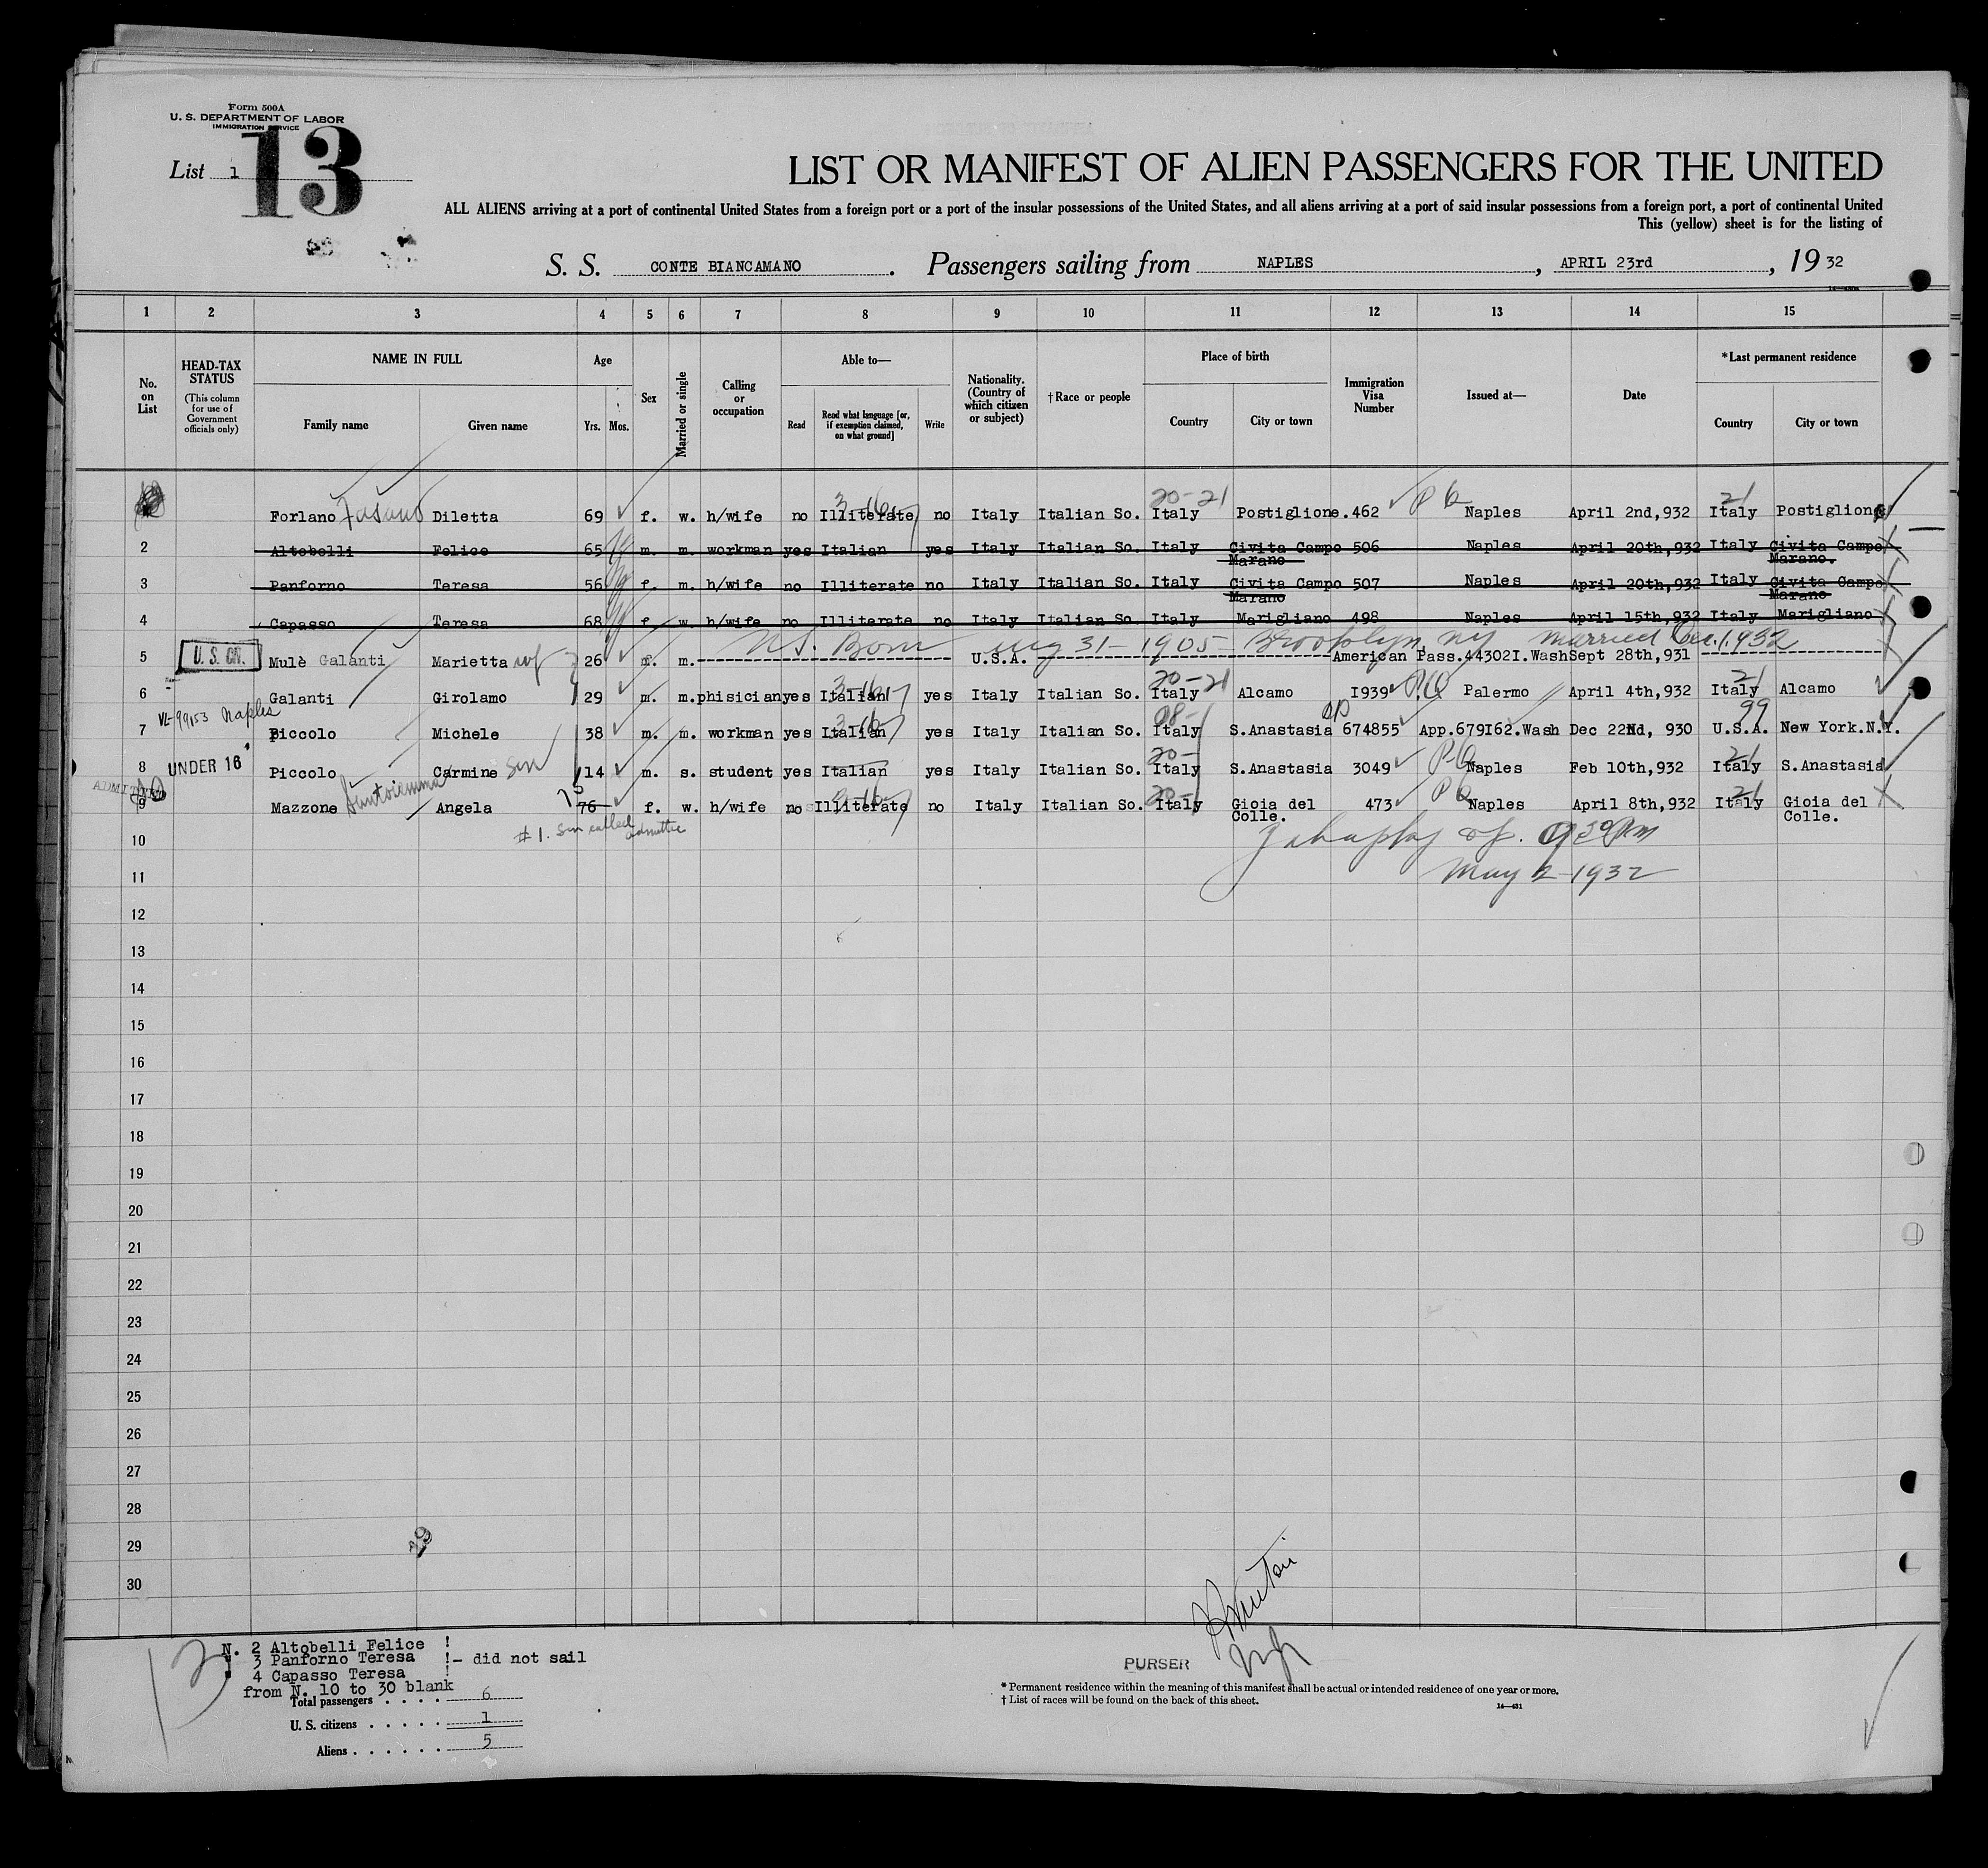 Form 500A
U. S. DEPARTMENT OF LABOR
IMMIGRATION SERVICE
List 1
13
LIST OR MANIFEST OF ALIEN PASSENGERS FOR THE UNITED
ALL ALIENS arriving at a port of continental United States from a foreign port or a port of the insular possessions of the United States, and all aliens arriving at a port of said insular possessions from a foreign port, a port of continental United
This (yellow) sheet is for the listing of
S. S. CONTE BIANCAMANO. Passengers sailing from NAPLES, APRIL 23rd, 1932
1 2 3 4 5 6 7 8 9 10 11 12 13 14 15
No. on List
HEAD-TAX STATUS (This column for use of Government officials only)
NAME IN FULL
Family name Given name
Age
Yrs. Mos.
Sex
Married or single
Calling or occupation
Able to—
Read
Read what language [or, if exemption claimed, on what ground]
Write
Nationality. (Country of which citizen or subject)
†Race or people
Place of birth
Country City or town
Immigration Visa Number
Issued at—
Date
*Last permanent residence
Country City or town
20-21 P 21
Forlano Fasano Diletta 69 f. w. h/wife no Illiterate no Italy Italian So. Italy Postiglione. 462 Naples April 2nd,932 Italy Postiglione
2 Altobelli Felice 65 m. m. workman yes Italian yes Italy Italian So. Italy Civita Campo Marano 506 Naples April 20th,932 Italy Civita Campo Marano.
3 Panforno Teresa 56 f. m. h/wife no Illiterate no Italy Italian So. Italy Civita Campo Marano 507 Naples April 20th,932 Italy Civita Campo Marano
4 Capasso Teresa 68 f. w. h/wife no Illiterate no Italy Italian So. Italy Marigliano 498 Naples April 15th,932 Italy Marigliano
U.S. Born Aug 31-1905- Brooklyn, NY married Dec. 1, 1932
5 U.S. CIT. Mulè Galanti Marietta wf 26 f. m. U.S.A. American Pass.44302I.Wash Sept 28th,931
20-21 21
6 Galanti Girolamo 29 m. m. phisician yes Italian yes Italy Italian So. Italy Alcamo I939 Palermo April 4th,932 Italy Alcamo
VL-99153 Naples 99
7 Piccolo Michele 38 m. m. workman yes Italian yes Italy Italian So. Italy S.Anastasia 674855 App.679I62.Wash Dec 22Nd, 930 U.S.A. New York.N.Y.
20- 21
8 UNDER 16 Piccolo Carmine Son 14 m. s. student yes Italian yes Italy Italian So. Italy S.Anastasia 3049 Naples Feb 10th,932 Italy S.Anastasia
ADMITTED 75 20- 21
9 Mazzone Angela 76 f. w. h/wife no Illiterate no Italy Italian So. Italy Gioia del Colle. 473 Naples April 8th,932 Italy Gioia del Colle.
#1. Son called admitted
10
11 May 2-1932
12
13
14
15
16
17
18
19
20
21
22
23
24
25
26
27
28
29
30
13
N. 2 Altobelli Felice !
" 3 Panforno Teresa !- did not sail
" 4 Capasso Teresa !
from N. 10 to 30 blank
Total passengers . . . . 6
U. S. citizens . . . . . 1
Aliens . . . . . . 5
PURSER
* Permanent residence within the meaning of this manifest shall be actual or intended residence of one year or more.
† List of races will be found on the back of this sheet.